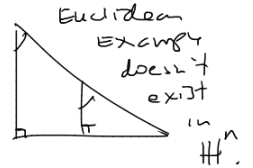 Euclidean
Example
doesn't
exist
in
ℍⁿ.